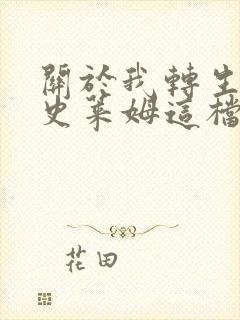 關於我轉生
史萊姆這檔
花田